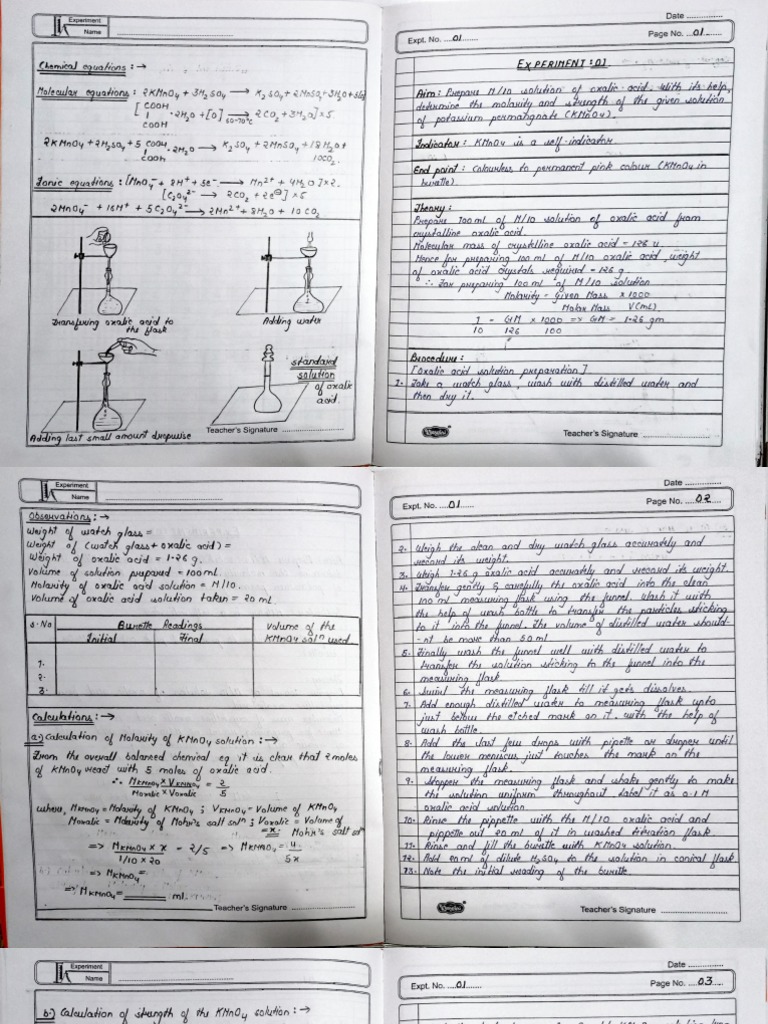 Experiment
Name
Chemical equations : →
Molecular equations : 2KMnO4 + 3H2SO4 → K2SO4 + 2MnSO4 + 3H2O + 5[O]
[ COOH
| .2H2O + [O] → 60-70°C 2CO2 + 3H2O ] × 5
COOH
2KMnO4 + 2H2SO4 + 5 COOH
| .2H2O → K2SO4 + 2MnSO4 + 18H2O +
COOH 10CO2
Ionic equations : [MnO4⁻ + 8H⁺ + 5e⁻ → Mn2+ + 4H2O] × 2
[C2O4²⁻ → 2CO2 + 2e⊖] × 5
2MnO4⁻ + 16H⁺ + 5C2O4²⁻ → 2Mn2+ + 8H2O + 10CO2
Transfering oxalic acid to
the flask
Adding water
Adding last small amount dropwise
standard
solution
of oxalic
acid.
Teacher's Signature
Date
Expt. No. 01
Page No. 01
EXPERIMENT : 01
Aim: Prepare M/10 solution of oxalic acid. With its help,
determine the molarity and strength of the given solution
of potassium permanganate (KMnO4).
Indicator: KMnO4 is a self-indicator.
End point : Colourless to permanent pink colour (KMnO4 in
burette)
Theory :
Prepare 100 ml of M/10 solution of oxalic acid from
crystalline oxalic acid.
Molecular mass of crystalline oxalic acid = 126 u.
Hence for preparing 100 ml of M/10 oxalic acid, weight
of oxalic acid crystals required = 1.26 g
∴ For preparing 100 ml of M/10 solution
Molarity = Given Mass × 1000
Molar Mass V(mL)
1 = GM × 1000 => GM = 1.26 gm
10 126 100
Procedure :
[Oxalic acid solution preparation]
1. Take a watch glass, wash with distilled water and
then dry it.
Teacher's Signature
Experiment
Name
Observations : →
Weight of watch glass =
Weight of (watch glass + oxalic acid) =
Weight of oxalic acid = 1.26 g.
Volume of solution prepared = 100ml.
Molarity of oxalic acid solution = M/10.
Volume of oxalic acid solution taken = 20 ml.
S.No Burette Readings Volume of the
Initial Final KMnO4 solⁿ used
1.
2.
3.
Calculations : →
a.) Calculation of Molarity of KMnO4 solution : →
From the overall balanced chemical eq it is clear that 2 moles
of KMnO4 react with 5 moles of oxalic acid.
∴ MKMnO4 × VKMnO4 = 2
Moxalic × Voxalic 5
where, MKMnO4 = Molarity of KMnO4 ; VKMnO4 = Volume of KMnO4
Moxalic = Molarity of Mohr's salt solⁿ ; Voxalic = Volume of
= x. Mohr's salt solⁿ
=> MKMnO4 × x = 2/5 => MKMnO4 = 4
1/10 × 20 5x
=> MKMnO4 =
=> MKMnO4 = ml.
Teacher's Signature
Date
Expt. No. 01
Page No. 02
2. Weigh the clean and dry watch glass accurately and
record its weight.
3. Weigh 1.26 g oxalic acid accurately and record its weight.
4. Transfer gently & carefully the oxalic acid into the clean
100 ml measuring flask using the funnel. Wash it with
the help of wash bottle to transfer the particles sticking
to it into the funnel. The volume of distilled water should-
-nt be more than 50 ml
5. Finally wash the funnel well with distilled water to
transfer the solution sticking to the funnel into the
measuring flask
6. Swirl the measuring flask till it gets dissolves.
7. Add enough distilled water to measuring flask upto
just below the etched mark on it, with the help of
wash bottle.
8. Add the last few drops with pipette or dropper until
the lower meniscus just touches the mark on the
measuring flask.
9. Stopper the measuring flask and shake gently to make
the solution uniform throughout label it as 0.1 M
oxalic acid solution.
10. Rinse the pippette with the M/10 oxalic acid and
pippette out 20 ml of it in washed titration flask.
11. Rinse and fill the burette with KMnO4 solution.
12. Add 20 ml of dilute H2SO4 to the solution in conical flask.
13. Note the initial reading of the burette.
Teacher's Signature
Experiment
Name
b.) Calculation of strength of the KMnO4 solution : →
Date
Expt. No. 01
Page No. 03